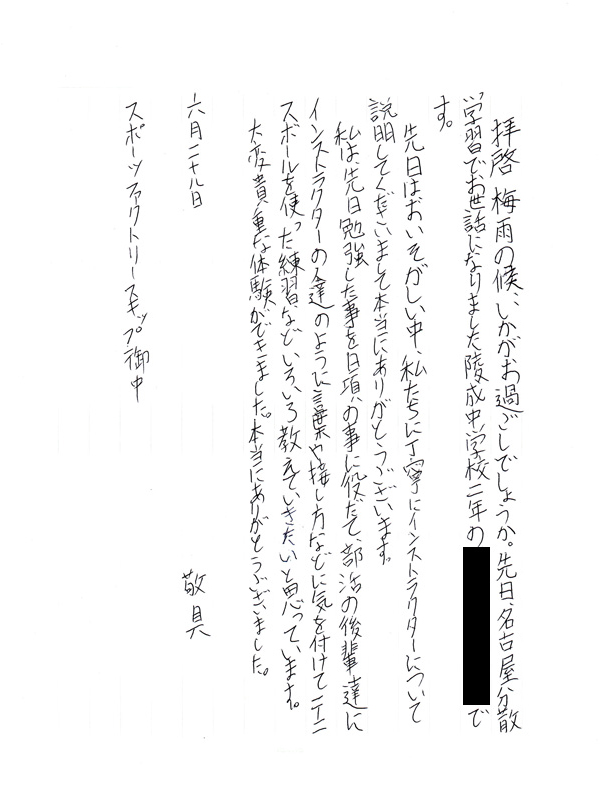 拝啓 梅雨の候、いかがお過ごしでしょうか。先日、名古屋分散
学習でお世話になりました陵成中学校二年の で
す。
先日はおいそがしい中、私たちに丁寧にインストラクターについて
説明してくださいまして本当にありがとうございます。
私は、先日勉強した事を日頃の事に役だて、部活の後輩達に
インストラクターの人達のように言葉や接し方などに気を付けてテニ
スボールを使った練習などいろいろ教えていきたいと思っています。
大変貴重な体験ができました。本当にありがとうございました。
敬具
六月二十八日
スポーツファクトリースキップ御中